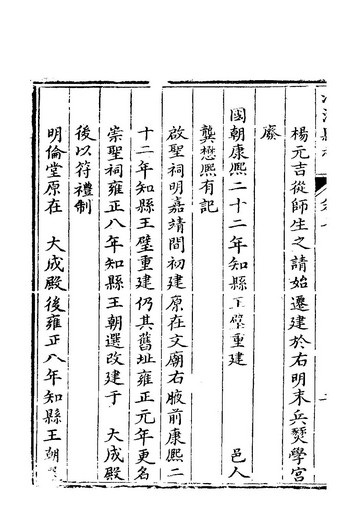 楊元吉從師生之請始遷建於右明末兵燹學宮
廢
國朝康熙二十二年知縣王璧重建 邑人
龔懋熙有記
啟聖祠明嘉靖間初建原在文廟右腋前康熙二
十二年知縣王璧重建仍其舊址雍正元年更名
崇聖祠雍正八年知縣王朝選改建于 大成殿
後以符禮制
明倫堂原在 大成殿後雍正八年知縣王朝